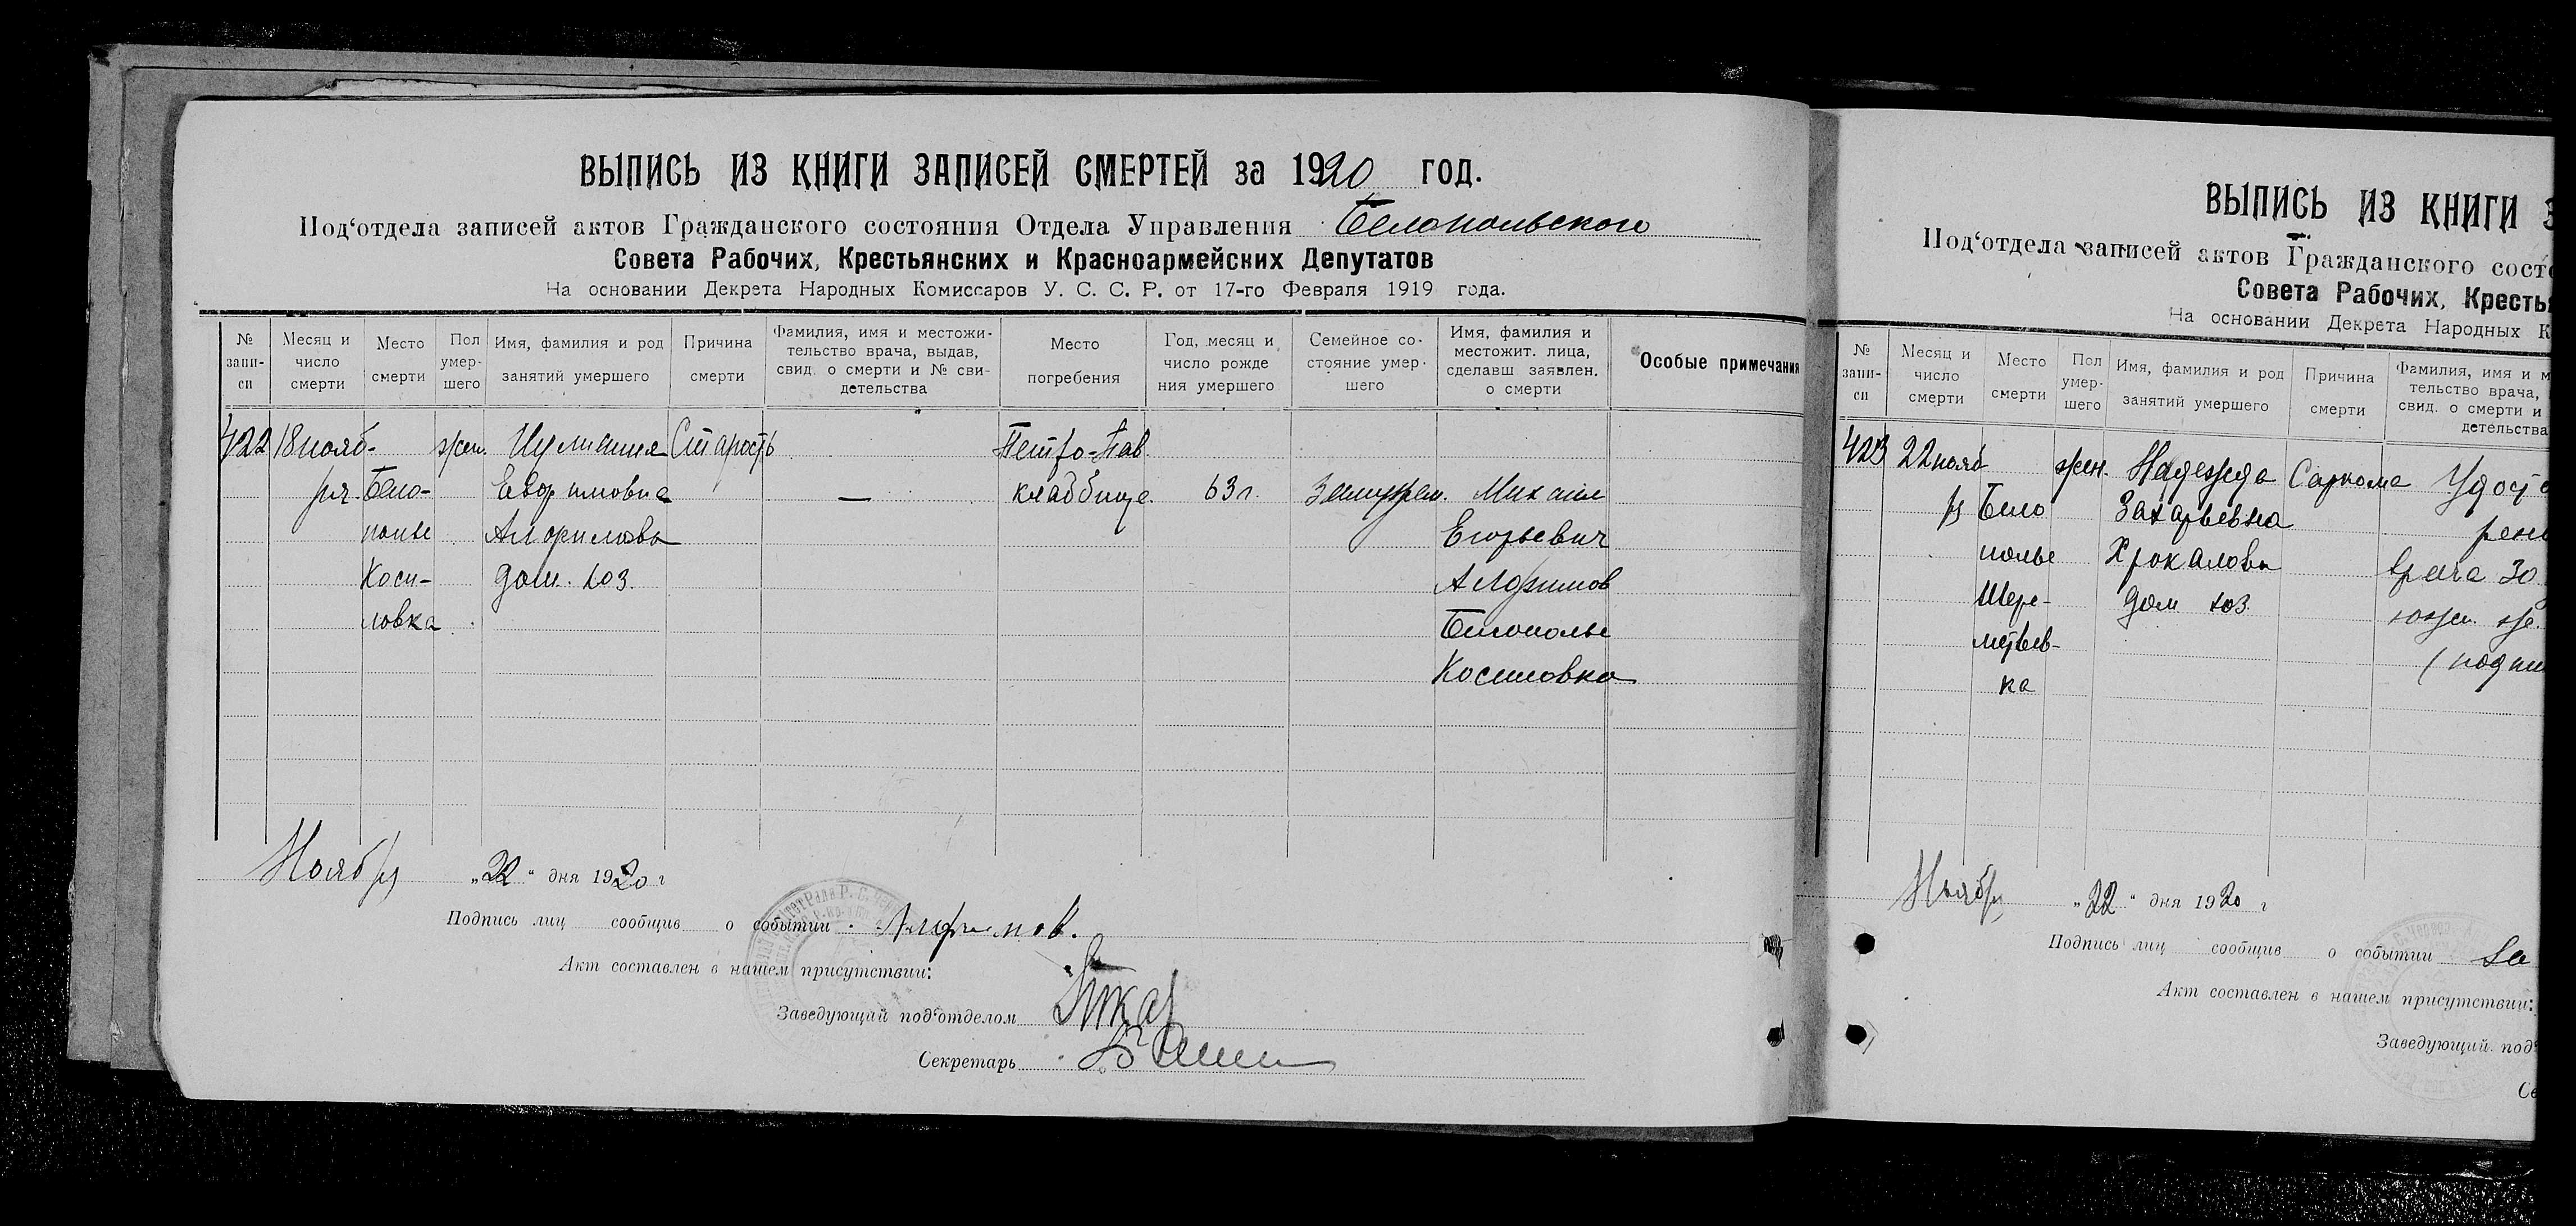 ВЫПИСЬ ИЗ КНИГИ ЗАПИСЕЙ СМЕРТЕЙ за 1920 год.
Под‘отдела записей актов Гражданского состояния Отдела Управления Белопольского
Совета Рабочих, Крестьянских и Красноармейских Депутатов
На основании Декрета Народных Комиссаров У. С. С. Р. от 17-го Февраля 1919 года.
№ запи-си
Месяц и число смерти
Место смерти
Пол умер-шего
Имя, фамилия и род занятий умершего
Причина смерти
Фамилия, имя и местожи-тельство врача, выдав, свид. о смерти и № сви-детельства
Место погребения
Год, месяц и число рожде ния умершего
Семейное со-стояние умер-шего
Имя, фамилия и местожит. лица, сделавш заявлен. о смерти
Особые примечания
422 18 нояб- жен. Иулияния Старость Петро-Пав
ря. Бело- Евфимовна — кладбище 63 л. Замужем. Михаил
полье Алфимова Егорьевич
Коси- дом. хоз. Алфимов
ловка Белополье
Косиловка
Ноября „22“ дня 1920 г
Подпись лиц сообщив о событии Алфимов.
Акт составлен в нашем присутствии:
Заведующий под‘отделом
Секретарь
ВЫПИСЬ ИЗ КНИГИ
Под‘отдела записей актов Гражданского сост
Совета Рабочих, Кресть
На основании Декрета Народных К
№ запи-си
Месяц и число смерти
Место смерти
Пол умер-шего
Имя, фамилия и род занятий умершего
Причина смерти
Фамилия, имя и м
тельство врача,
свид. о смерти и
детельства
423 22 нояб жен. Надежда Саркома Удост
ря Бело Захарьевна рени
полье Хрокалова врача 30
Шере- дом хоз.
метьев- (подпи
ка
Ноября „22“ дня 1920 г
Подпись лиц сообщив о событии
Акт составлен в нашем присутствии:
Заведующий под‘
Се